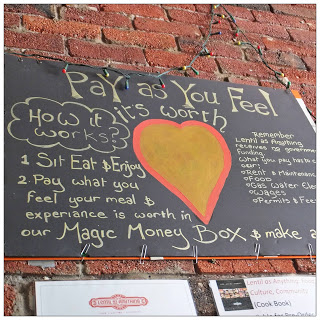 Pay as You Feel
it's worth
How it
works?
1 Sit Eat & Enjoy
2. Pay what you
feel your meal &
experiance is worth in
our Magic Money Box & make a
Remember
Lentil as Anything
receives no government
funding.
What you pay has to c
our:
Rent & Maintenanc
Food
Gas Water Elec
Wages
Permits & Fees
Lentil as Anything
Culture, Community
(Cook Book)
LENTIL AS ANYTHING